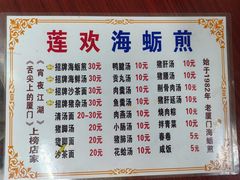 莲欢海蛎煎
《宵夜江湖》
《舌尖上的厦门》
上榜店家
招牌海蛎煎30元
招牌炒海蛎30元
招牌炒沙茶面30元
招牌炒面线30元
清汤面20－30元
猪脚汤20元
猪脚面20元
沙茶面20元
鸭腱汤10元
贡丸汤10元
鱼丸汤10元
鱼羹汤10元
肉羹汤10元
小肠汤10元
猪肺汤10元
花蛤汤10元
猪肝汤10元
猪腰汤10元
剔骨肉汤10元
猪肝面线10元
烧肉粽10元
拌青菜10元
春卷5元
咸饭5元
始于1982年 老厦门海蛎煎